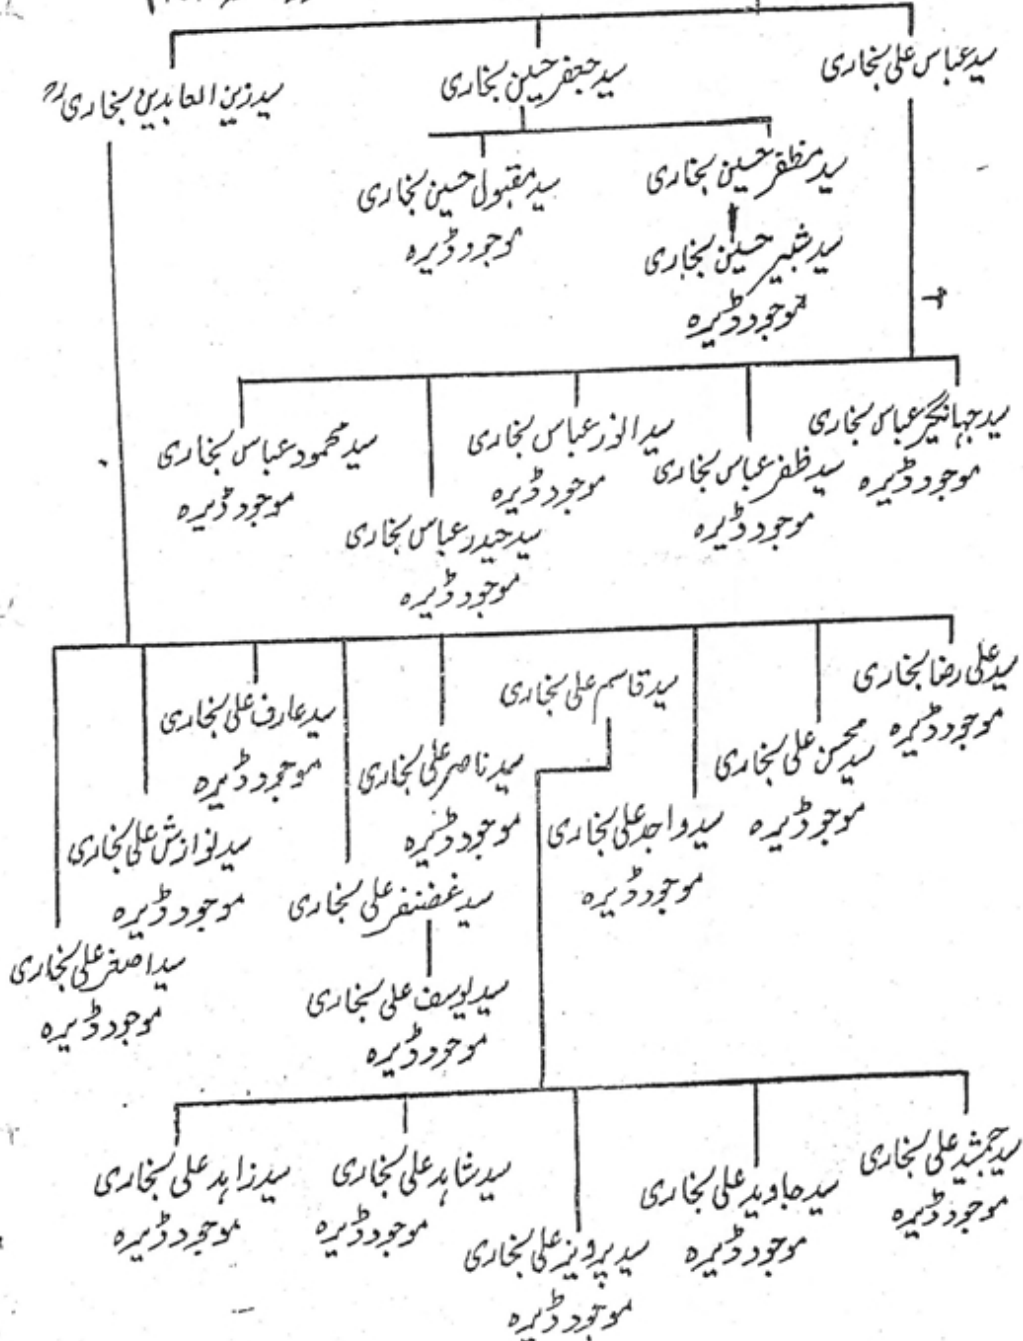 سید عباس علی بخاری
سید جعفر حسین بخاری
سید زین العابدین بخاری
سید مظفر حسین بخاری
سید مقبول حسین بخاری
موجود ڈیرہ
سید شبیر حسین بخاری
موجود ڈیرہ
سید جہانگیر عباس بخاری
موجود ڈیرہ
سید ظفر عباس بخاری
موجود ڈیرہ
سید انور عباس بخاری
موجود ڈیرہ
سید حیدر عباس بخاری
موجود ڈیرہ
سید محمود عباس بخاری
موجود ڈیرہ
سید علی رضا بخاری
موجود ڈیرہ
سید محسن علی بخاری
موجود ڈیرہ
سید واجد علی بخاری
موجود ڈیرہ
سید قاسم علی بخاری
سید ناصر علی بخاری
موجود ڈیرہ
سید غضنفر علی بخاری
سید یوسف علی بخاری
موجود ڈیرہ
سید عارف علی بخاری
موجود ڈیرہ
سید نوازش علی بخاری
موجود ڈیرہ
سید اصغر علی بخاری
موجود ڈیرہ
سید جمشید علی بخاری
موجود ڈیرہ
سید جاوید علی بخاری
موجود ڈیرہ
سید پرویز علی بخاری
موجود ڈیرہ
سید شاہد علی بخاری
موجود ڈیرہ
سید زاہد علی بخاری
موجود ڈیرہ